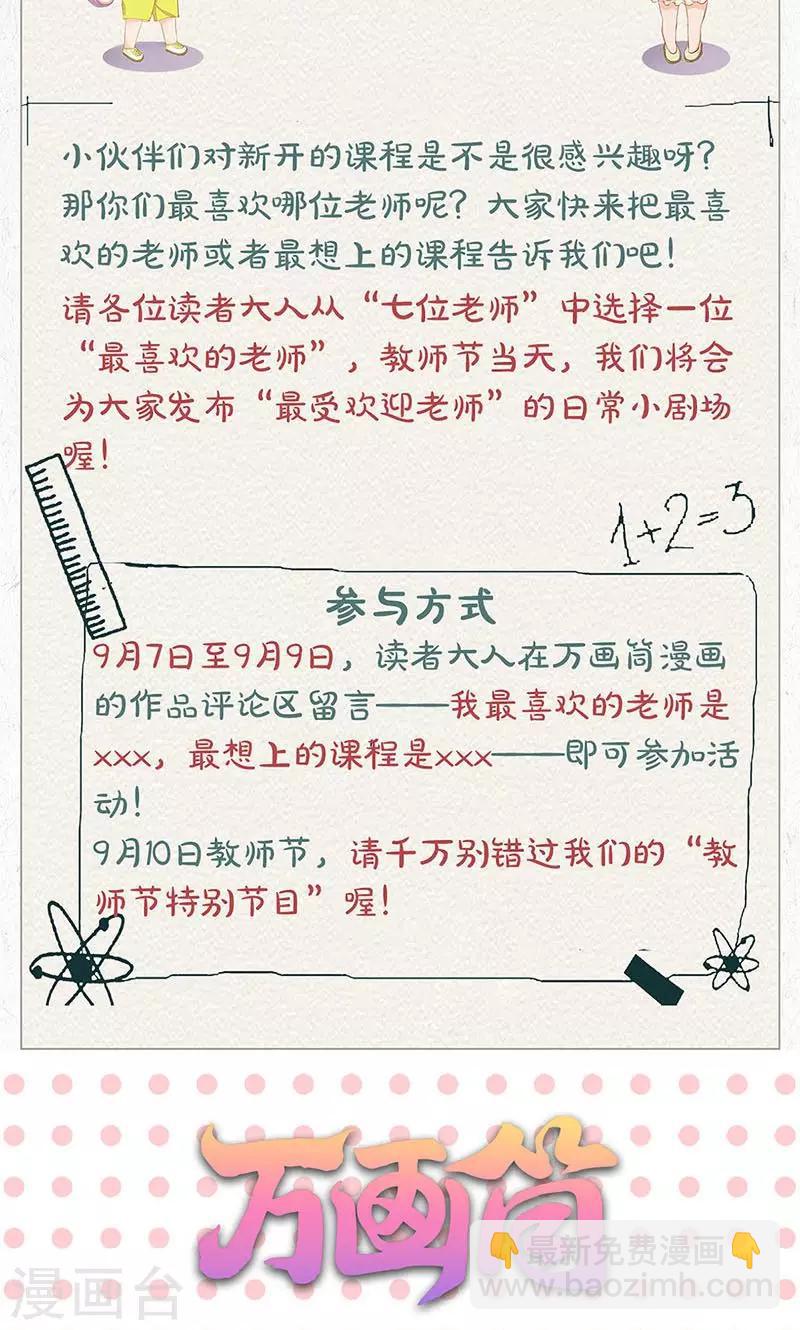 小伙伴们对新开的课程是不是很感兴趣呀？
那你们最喜欢哪位老师呢？大家快来把最喜
欢的老师或者最想上的课程告诉我们吧！
请各位读者大人从“七位老师”中选择一位
“最喜欢的老师”，教师节当天，我们将会
为大家发布“最受欢迎老师”的日常小剧场
喔！
1+2=3
参与方式
9月7日至9月9日，读者大人在万画筒漫画
的作品评论区留言——我最喜欢的老师是
xxx，最想上的课程是xxx——即可参加活
动！
9月10日教师节，请千万别错过我们的“教
师节特别节目”喔！
万画筒
漫画台
👇最新免费漫画👇
www.baozimh.com